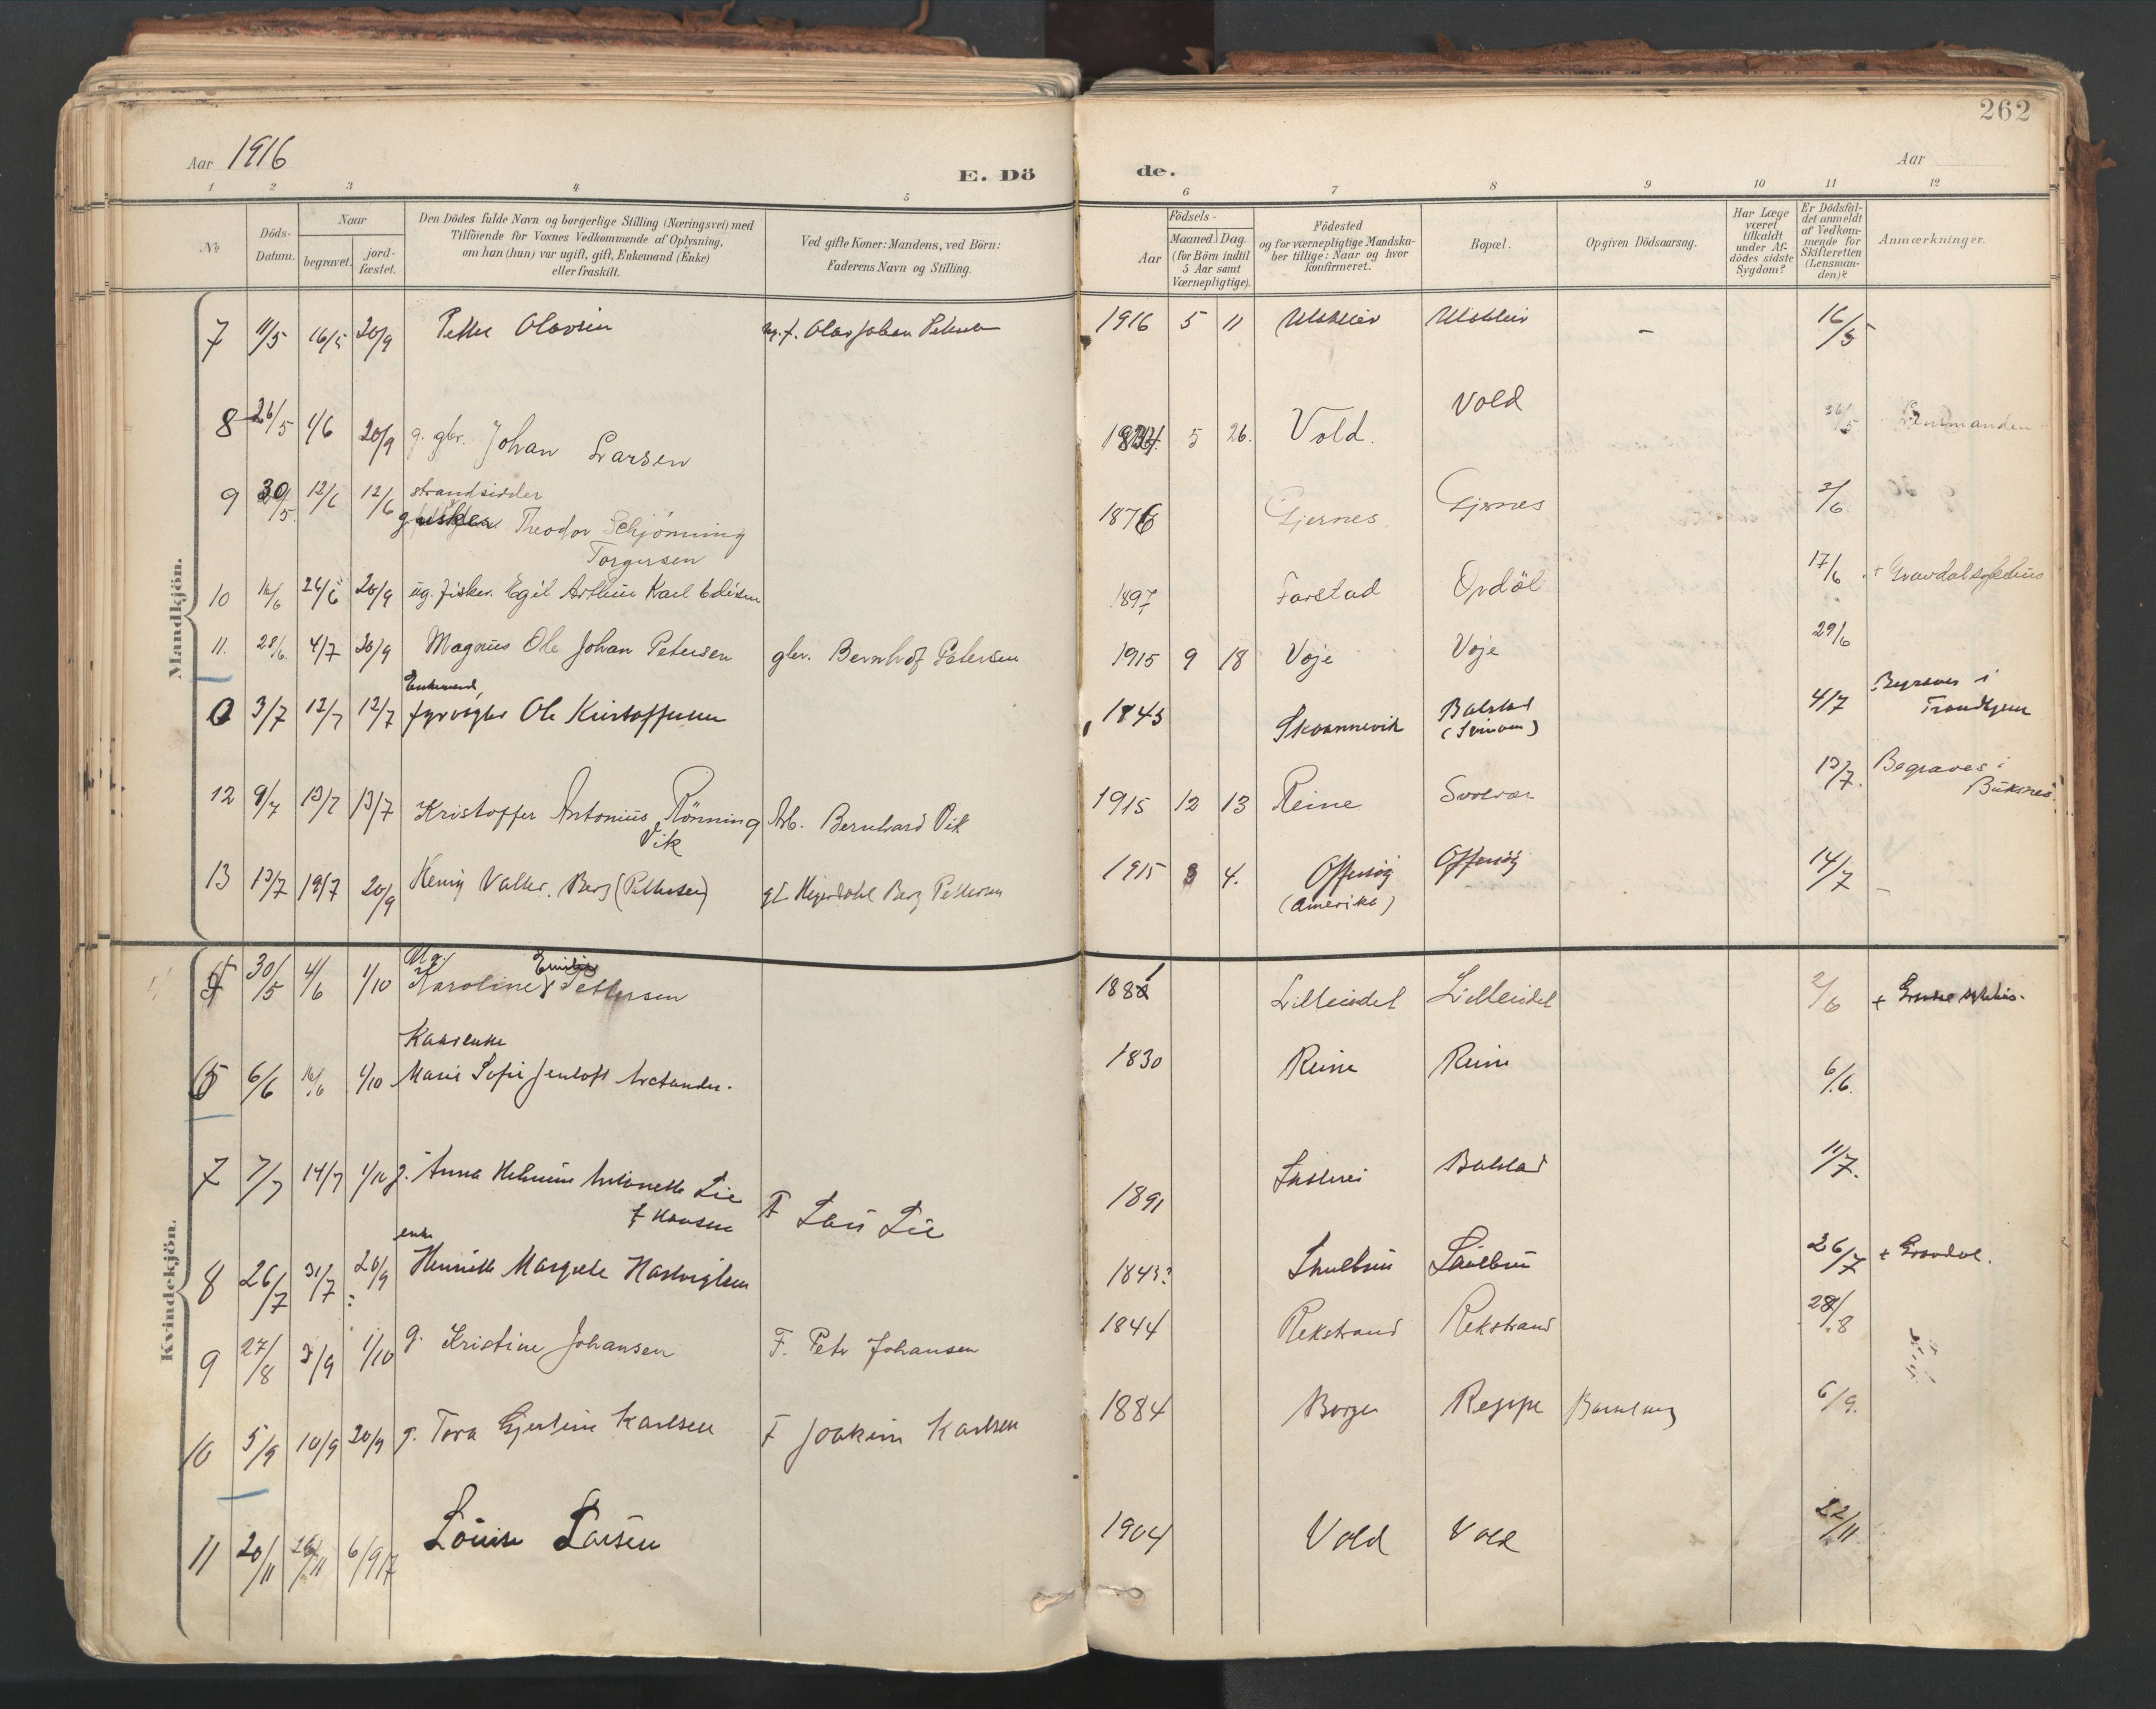 262
Aar 1916
E. Dö
de.
Aar
1 2 3 4 5 6 7 8 9 10 11 12
No
Döds-
Datum.
Naar
begravet.
jord-
fæstet.
Den Dödes fulde Navn og borgerlige Stilling (Næringsvei) med
Tilföiende for Voxnes Vedkommende af Oplysning,
om han (hun) var ugift, gift, Enkemand (Enke)
eller fraskilt.
Ved gifte Koner: Mandens, ved Börn:
Faderens Navn og Stilling.
Födsels-
Aar
Maaned Dag
(for Börn indtil
5 Aar samt
Værnepligtige).
Födested
og for værnepligtige Mandska-
ber tillige: Naar og hvor
konfirmeret.
Bopæl.
Opgiven Dödsaarsag.
Har Læge
været
tilkaldt
under Af-
dödes sidste
Sygdom?
Er Dödsfal-
det anmeldt
af Vedkom-
mende for
Skifteretten
(Lensman-
den)?
Anmærkninger.
Mandkjön.
7 11/5 16/5 20/9 Petter Olavsen Olav Johan 1916 5 11 - 16/5
8 26/5 1/6 20/9 g. gbr. Johan Larsen 5 26. Vold. Vold 26/5 Lensmanden
9 30/5 12/6 12/6 strandsidder
g fisker Theodor Schjönning
Torgersen 1876 Gjernes Gjernes 2/6
10 16/6 24/6 20/9 ug. fisker. Egil Arthur Karl 1897 Farstad 17/6
11. 28/6 4/7 20/9 Magnus Ole Johan Petersen gbr. Bernhof Petersen 1915 9 18 Voje Voje 29/6
Enkemand,
0 3/7 12/7 12/7 fyrvogter Ole Kristoffersen 1843 Skaannevik Balstad 4/7 Begraves i
Trondhjem
12 9/7 13/7 13/7 Kristoffer Antonius Rönning
Vik Arb. Bernhard Vik 1915 12 13 Reine Svolvær 13/7. Begraves i
Buksnes.
13 13/7 19/7 20/9 Henry Valter. Berg (Pettersen) Berg Pettersen 1915 4. Offersöy
(Amerika) Offersöy 14/7 -
Kvindekjön.
30/5 4/6 1/10 Ug.
Karoline Emilie Pettersen 1881 Lilleeidet Lilleeidet 2/6
5 6/6 16/6 1/10 Marie Sofie Jentoft 1830 Reine Reine 6/6.
7 7/7 14/7 1/10 g. Anna Antonette Lie
f Hansen F Lie 1891 Balstad 11/7.
enke
8 26/7 31/7 20/9 Henrikke Margrete Hartvigsen 1843? 26/7 + Gravdal.
9 27/8 3/9 1/10 g. Kristine Johansen F. Peter Johansen 1844 Rekstrand Rekstrand 28/8
10 5/9 10/9 20/9 g. Tora Karlsen F Joakim Karlsen 1884 Borge Reppe Barselseng 6/9.
11 20/11 26/11 6/9 17 Louise Larsen 1904 Vold Vold 22/11